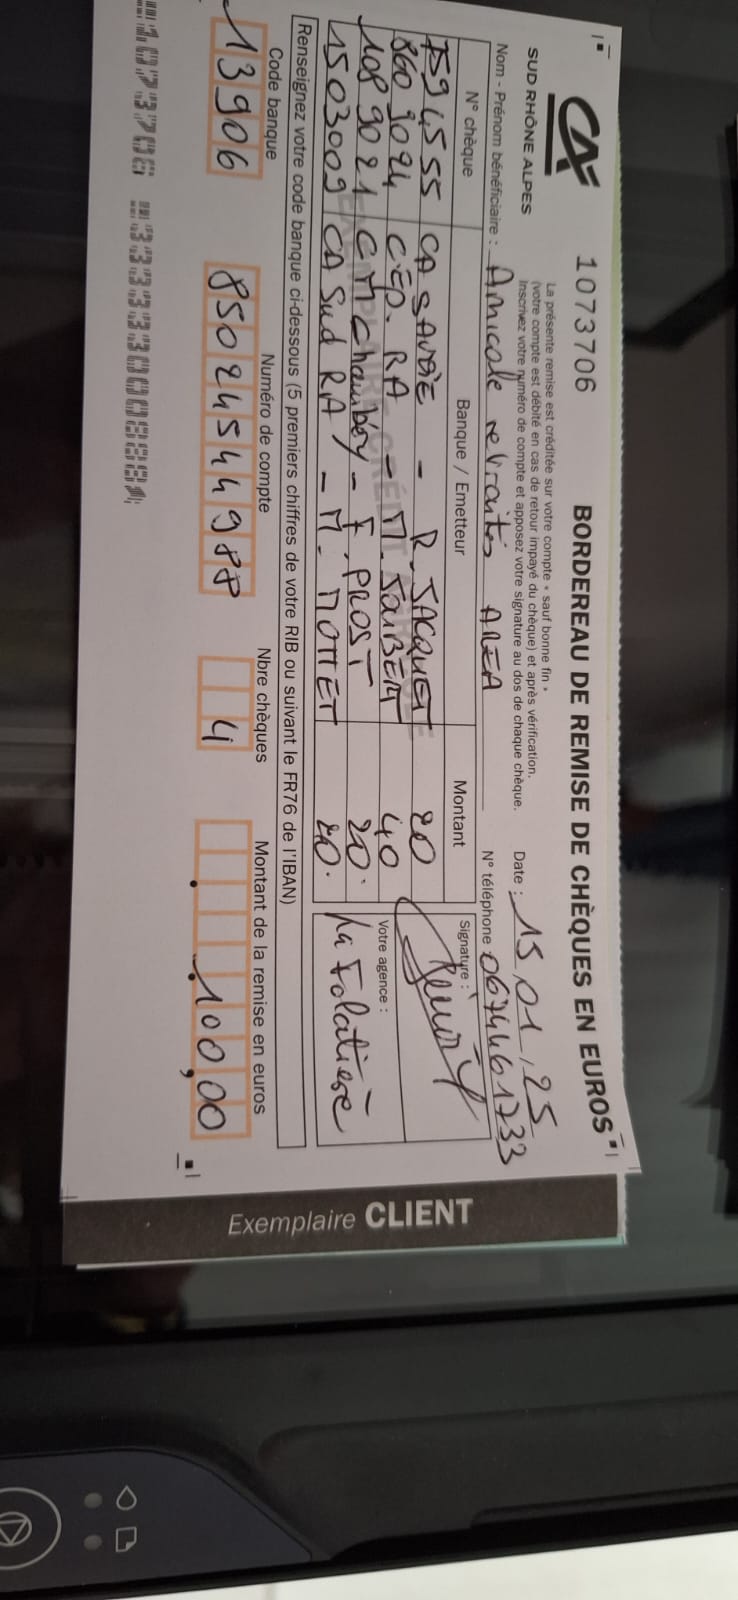 CA
SUD RHÔNE ALPES
1073706
BORDEREAU DE REMISE DE CHÈQUES EN EUROS
La présente remise est créditée sur votre compte « sauf bonne fin »
(votre compte est débité en cas de retour impayé du chèque) et après vérification.
Inscrivez votre numéro de compte et apposez votre signature au dos de chaque chèque.
Date : 15.01.25
Nom - Prénom bénéficiaire : Amicale retraités AREA
N° téléphone 0674461733
N° chèque Banque / Emetteur Montant
759 4555 CA SAVOIE - R. JACQUET 20
860 9024 CEP. RA - M. JOUBERT 40
108 9021 CM Chambéry - F. PROST 20.
1503009 CA Sud RA - M. MOTTET 20.
Signature :
Votre agence :
La Folatière
Renseignez votre code banque ci-dessous (5 premiers chiffres de votre RIB ou suivant le FR76 de l'IBAN)
Code banque Numéro de compte Nbre chèques Montant de la remise en euros
13906 85024544988 4 100,00
Exemplaire CLIENT